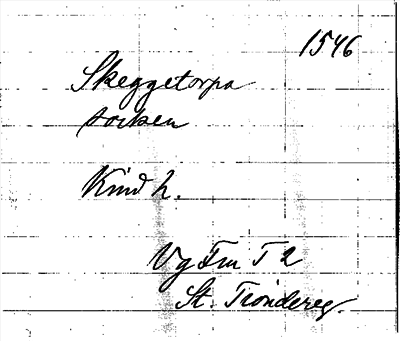 1546
Skeggetorpa
socken
Kind h.
Vg Fm T 2
St. Tiondereg.